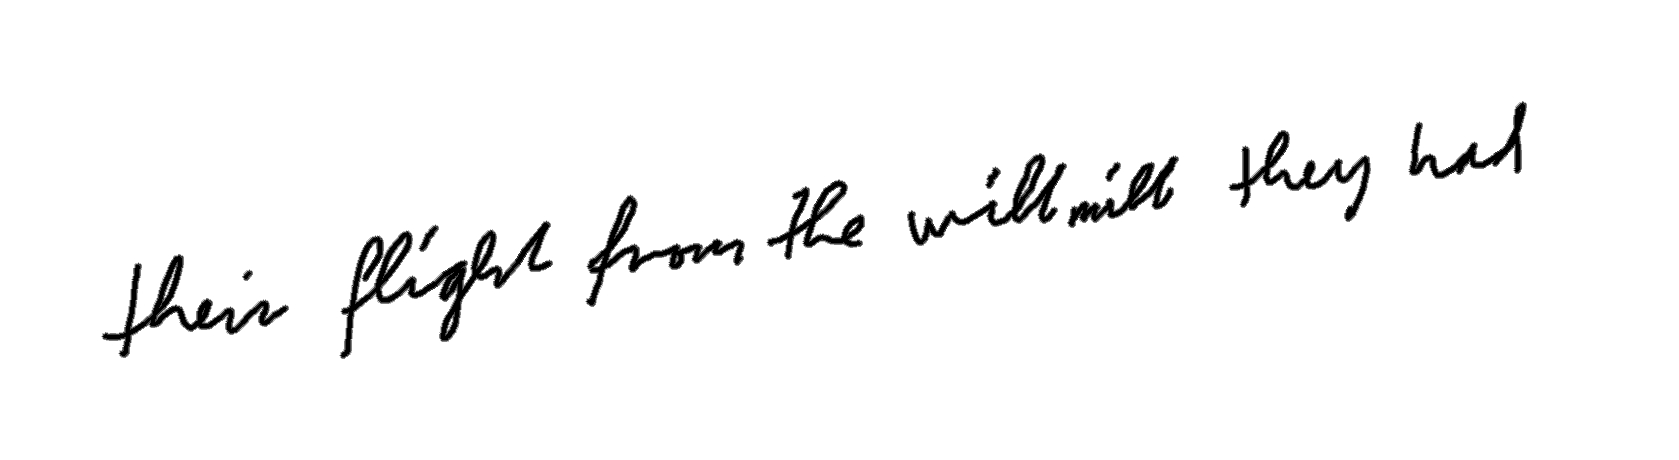 their flight from the willmill they had